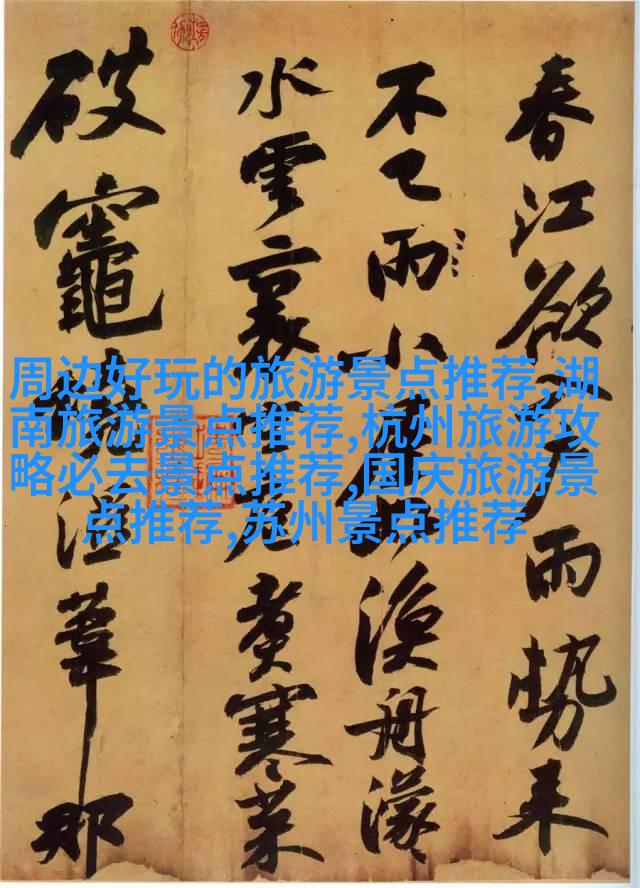 春江欲入戶雨勢来
不已雨小屋如漁舟濛
水雲裏空庖煮寒菜
破竈燒溼葦那
周边好玩的旅游景点推荐,湖
南旅游景点推荐,杭州旅游攻
略必去景点推荐,国庆旅游景
点推荐,苏州景点推荐